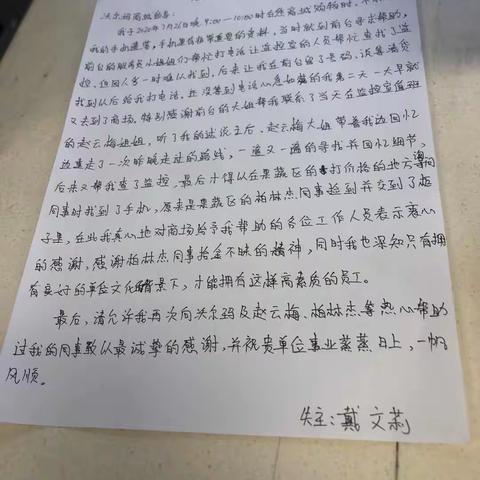 沃尔玛商城领导:
我于2020年7月26日晚9:00—10:00时在贵商城购物时,不
我的手机遗落,手机里有很重要的资料,当时就到前台寻求帮助,
前台的服务员小姐姐们帮忙打电话让监控室的人员帮忙查找了监
控,但因人多一时难以找到,后来让我在前台留了号码,说等清货
找到以后给我打电话,还没等到电话心急如焚的我第二天一大早就
又去到了商场,特别感谢前台的大姐帮我联系了当天在监控室值班
的赵云梅姐姐,听了我的述说之后,赵云梅大姐带着我边回忆
边重走了一次昨晚走过的路线,一遍又一遍的寻找并回忆细节,
后来又帮我查了监控,最后才得以在果蔬区的打价格的地方
同事时我到了手机,原来是果蔬区的柏林杰同事捡到并交到了
于是,在此我真心地对商场给予我帮助的各位工作人员表示衷心
的感谢,感谢柏林杰同事拾金不昧的精神,同时我也深知只有拥
有良好的单位文化背景下,才能拥有这样高素质的员工。
最后,请允许我再次向沃尔玛及赵云梅、柏林杰等热心帮助
过我的同事致以最诚挚的感谢,并祝贵单位事业蒸蒸日上,一帆
风顺。
失主:戴文莉